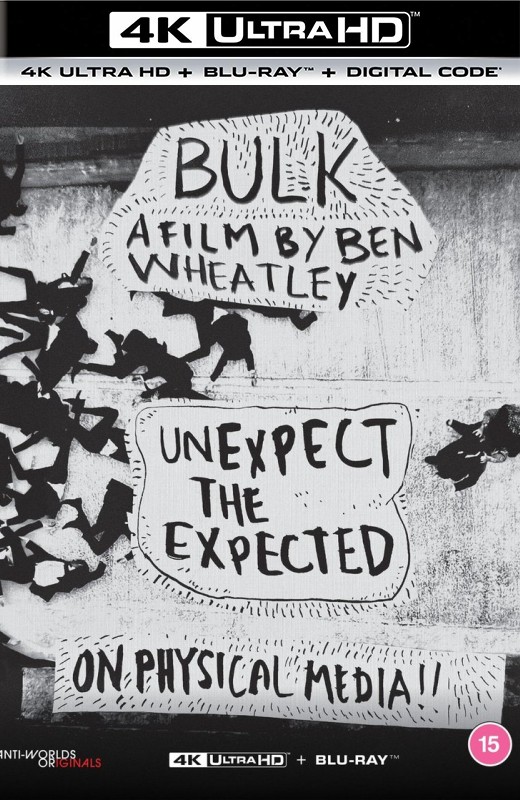 4K ULTRA HD™
4K ULTRA HD + BLU-RAY™ + DIGITAL CODE*
BULK
A FILM BY BEN
WHEATLEY
UNEXPECT
THE
EXPECTED
ON PHYSICAL MEDIA!!
ANTI-WORLDS
ORIGINALS
4K ULTRA HD™ + BLU-RAY™
15